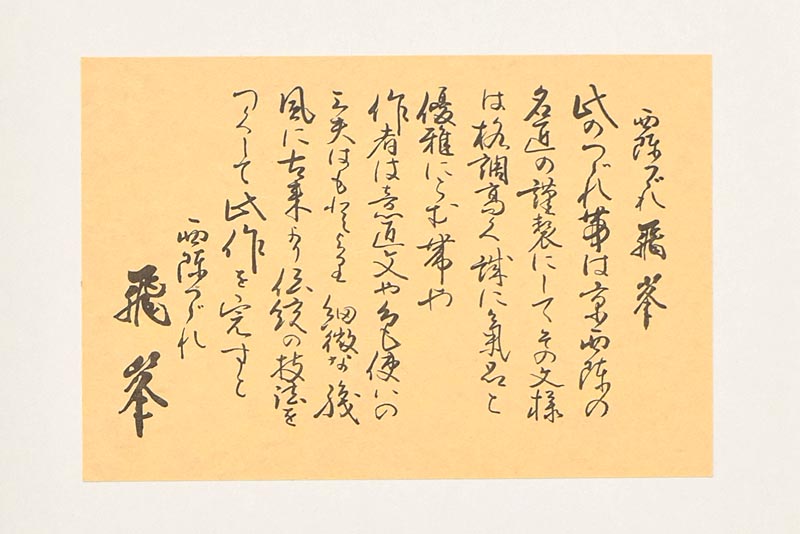 西陣つづれ 飛峯
此のつづれ帯は京西陣の
名匠の謹製にしてその文様
は格調高く誠に気品と
優雅にとむ帯や
作者は意匠文や色使いの
工夫はもとより 細微な機
風に古来より伝統の技法を
つくして此作を完すと
西陣つづれ
飛峯